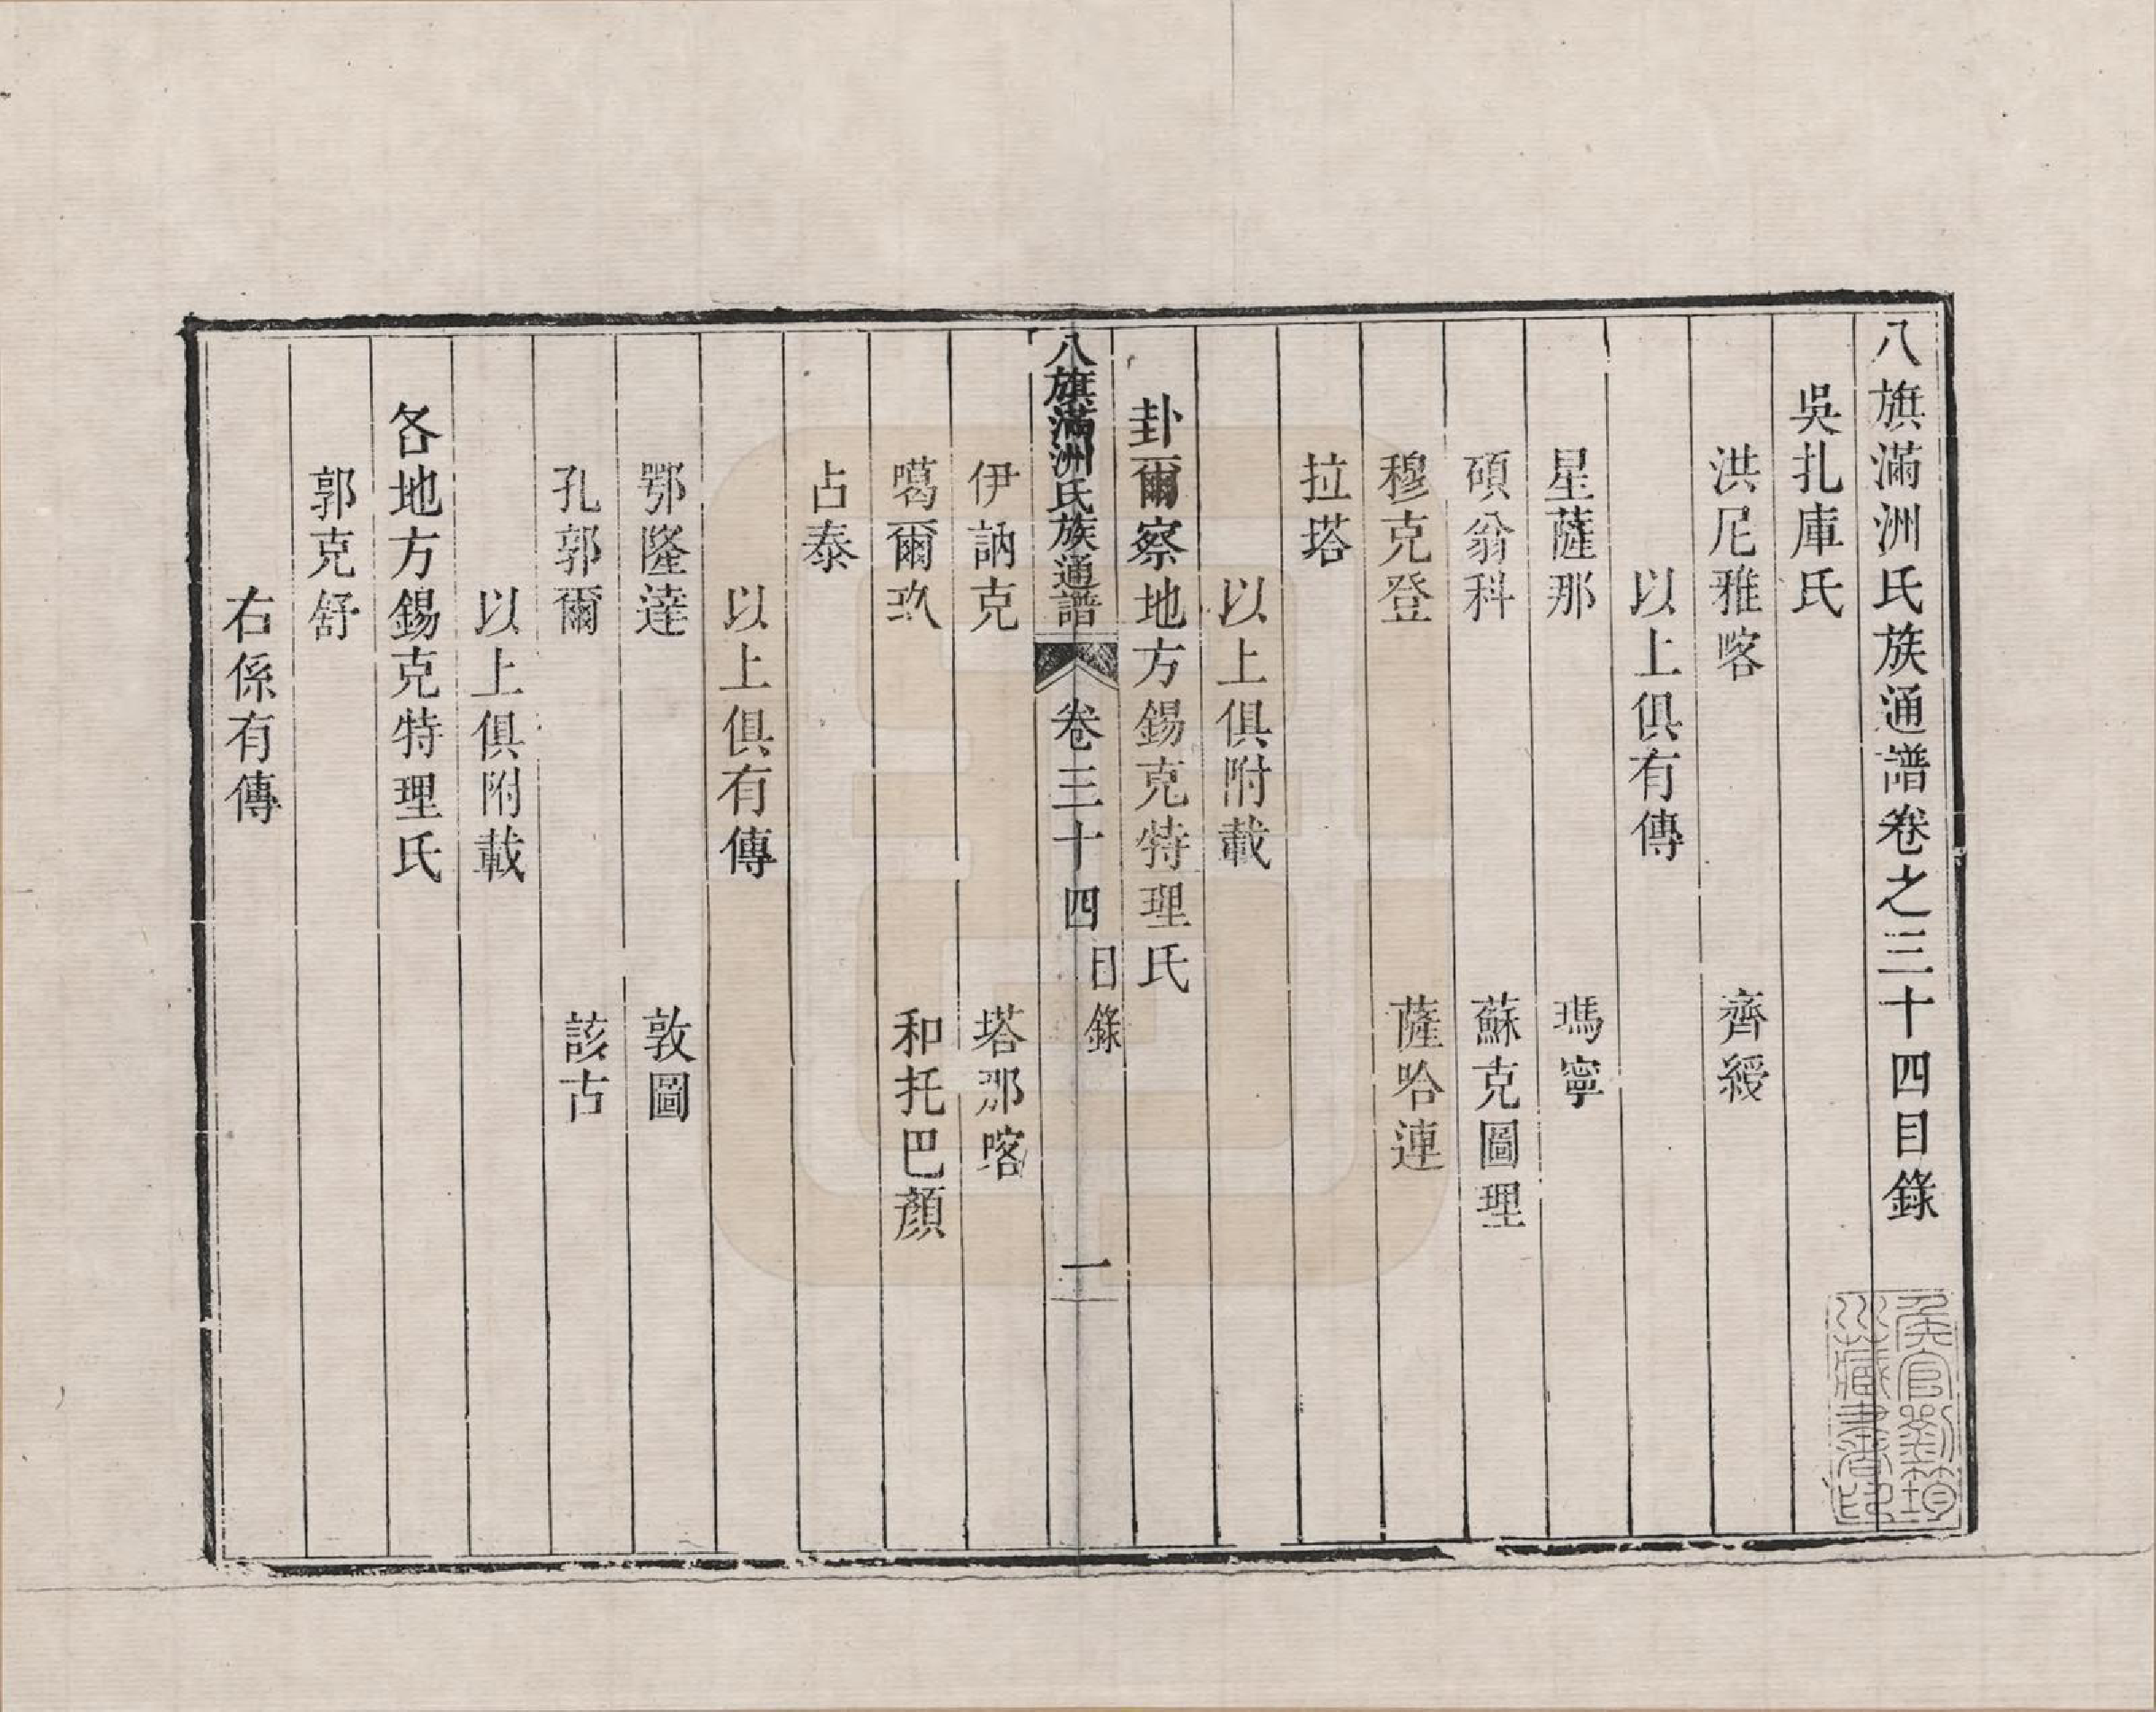 八旗滿洲氏族通譜卷之三十四目錄
吳扎庫氏
洪尼雅喀　齊綬
以上俱有傳
星薩那　瑪寧
碩翁科　蘇克圖理
穆克登　薩哈連
拉塔
以上俱附載
卦爾察地方錫克特理氏
八旗滿洲氏族通譜　卷三十四　目錄　一
伊訥克　塔那喀
噶爾玖　和托巴顏
占泰
以上俱有傳
鄂隆達　敦圖
孔郭爾　該古
以上俱附載
各地方錫克特理氏
郭克舒
右係有傳
侯官劉筠
川藏書畫印